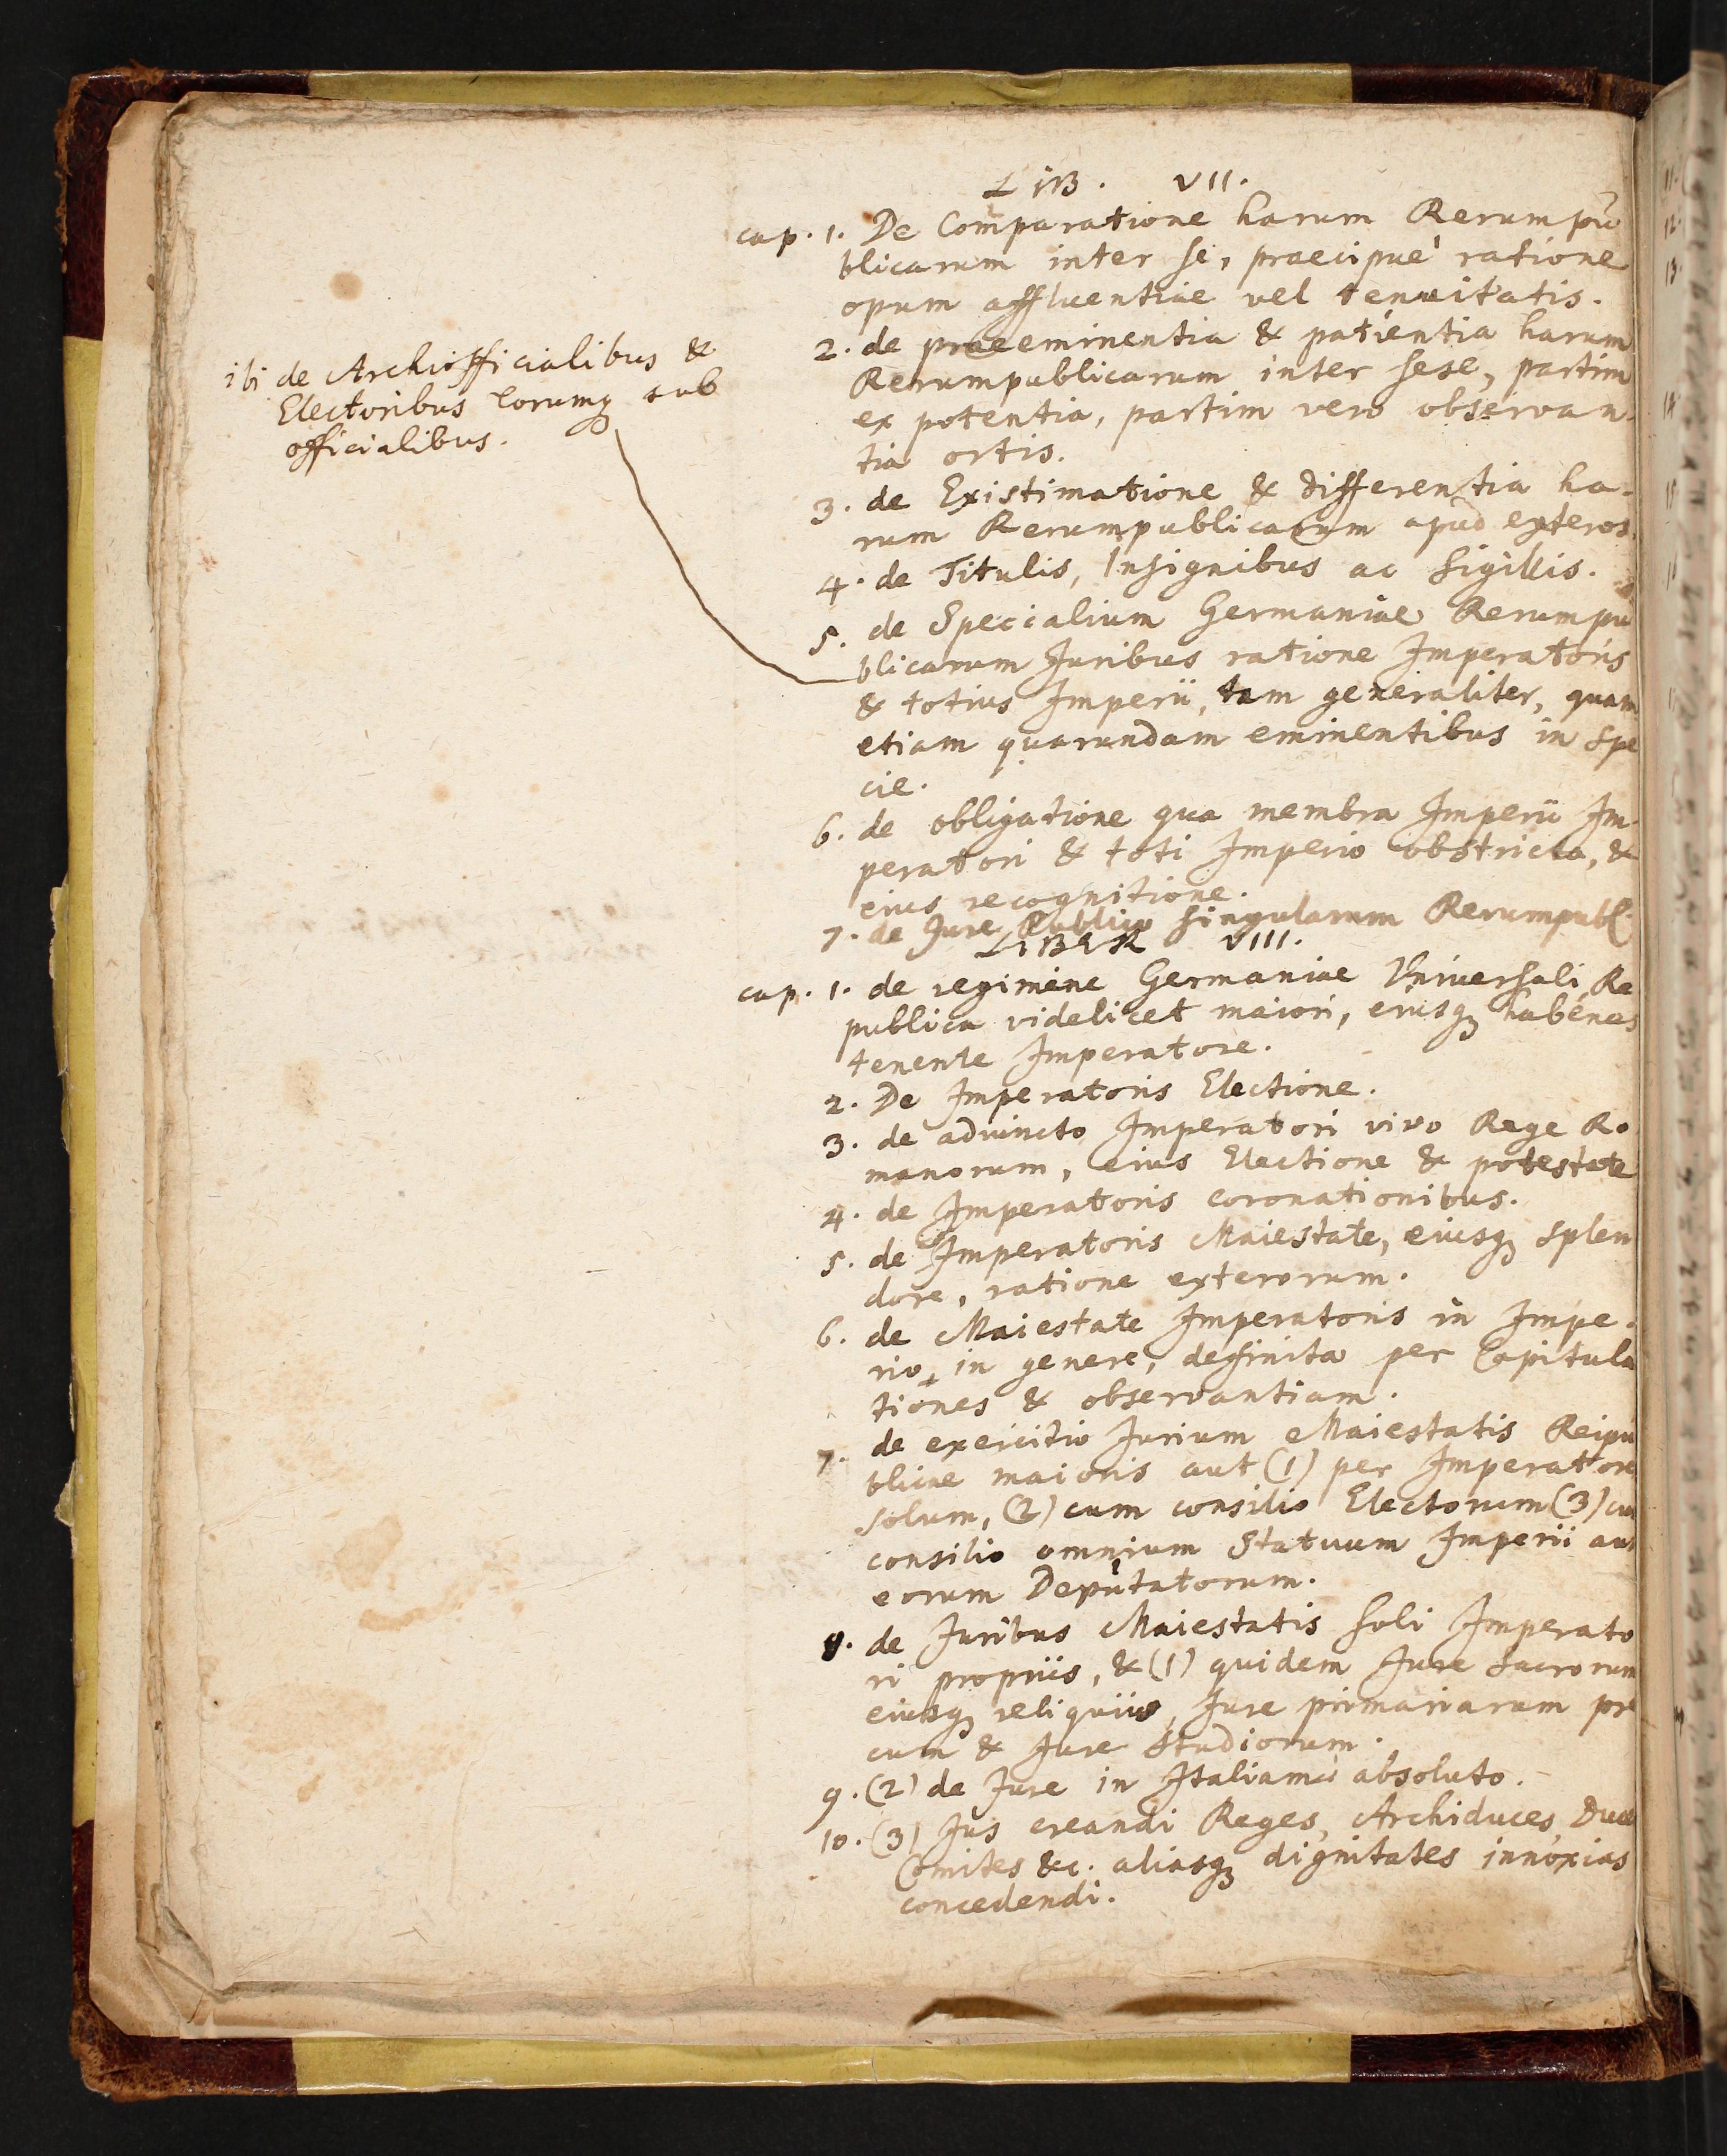 LIB. VII.
cap. 1. De Comparatione harum Rerumpu
blicarum inter se, praecipuè ratione
opum affluentiae vel tenuitatis.
2. de praeeminentia & patientia harum
Rerumpublicarum inter sese, partim
ex potentia, partim vero observan-
tia ortis.
3. de Existimatione & differentia ha-
rum Rerumpublicarum apud exteros
4. de Titulis, Insignibus ac Sigillis.
5. de Specialium Germaniae Rerumpu
blicarum Juribus ratione Imperatoris
& totius Imperii, tam generaliter, quam
etiam quarundam eminentibus in spe
cie.
ibi de Archiofficialibus &
Electoribus eorumq; sub
officialibus.
6. de obligatione qua membra Imperii Im-
peratori & toti Imperio obstricta, &
eius recognitione.
7. de Jure Publico singularum Rerumpubl.
LIBER VIII.
cap. 1. de regimine Germaniae Universali, Re
publica videlicet maiori, eiusq; habenas
tenente Imperatore.
2. De Imperatoris Electione.
3. de adiuncto Imperatori vivo Rege Ro
manorum, eius Electione & potestate
4. de Imperatoris coronationibus.
5. de Imperatoris Maiestate, eiusq; splen
dore, ratione exterorum.
6. de Maiestate Imperatoris in Impe-
rio, in genere, definita per Capitula
tiones & observantiam.
7. de exercitio Jurium Maiestatis Reipu
blicae maioris aut (1) per Imperatore
solum, (2) cum consilio Electorum (3) cum
consilio omnium Statuum Imperii aut
eorum Deputatorum.
8. de Juribus Maiestatis soli Imperato
ri propriis, & (1) quidem Jure sacrorum
eiusq; reliquiis, Jure primariarum pre
cum & Jure Studiorum.
9. (2) de Jure in Italiam absoluto.
10. (3) Jus creandi Reges, Archiduces, Duces
Comites &c. aliasq; dignitates innoxias
concedendi.